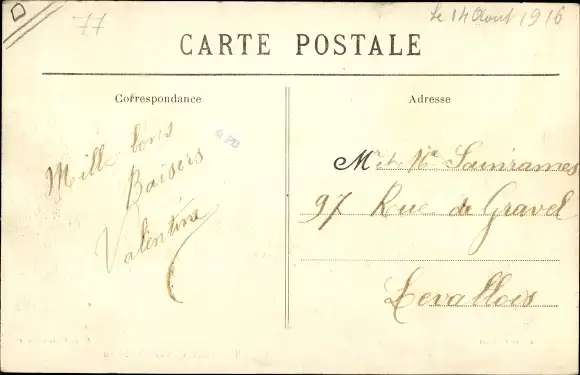 77
Le 14 Aout 1916
CARTE POSTALE
Correspondance
Adresse
Mille bons
Baisers
Valentine
M et Me Sainrames
97 Rue de Gravel
Levallois